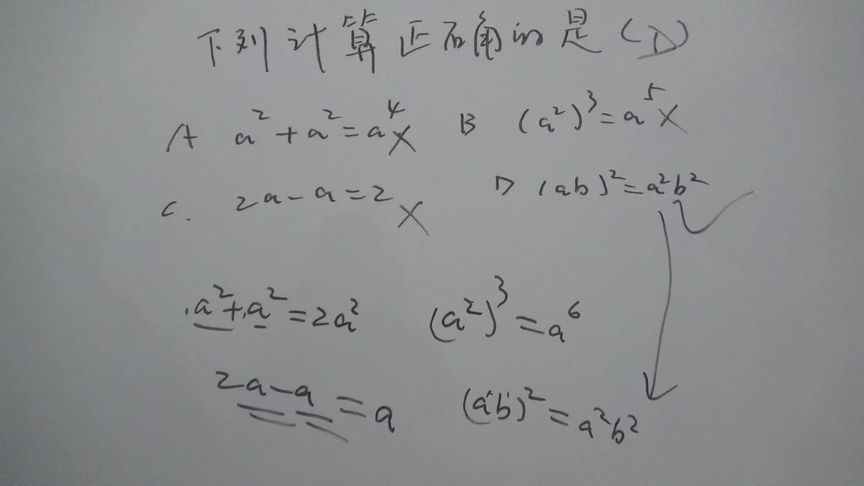 下列计算正确的是(D)
A a²+a²=a⁴ × B (a²)³=a⁵ ×
C. 2a-a=2 × D (ab)²=a²b² ✓
a²+a²=2a² (a²)³=a⁶
2a-a=a (ab)²=a²b²